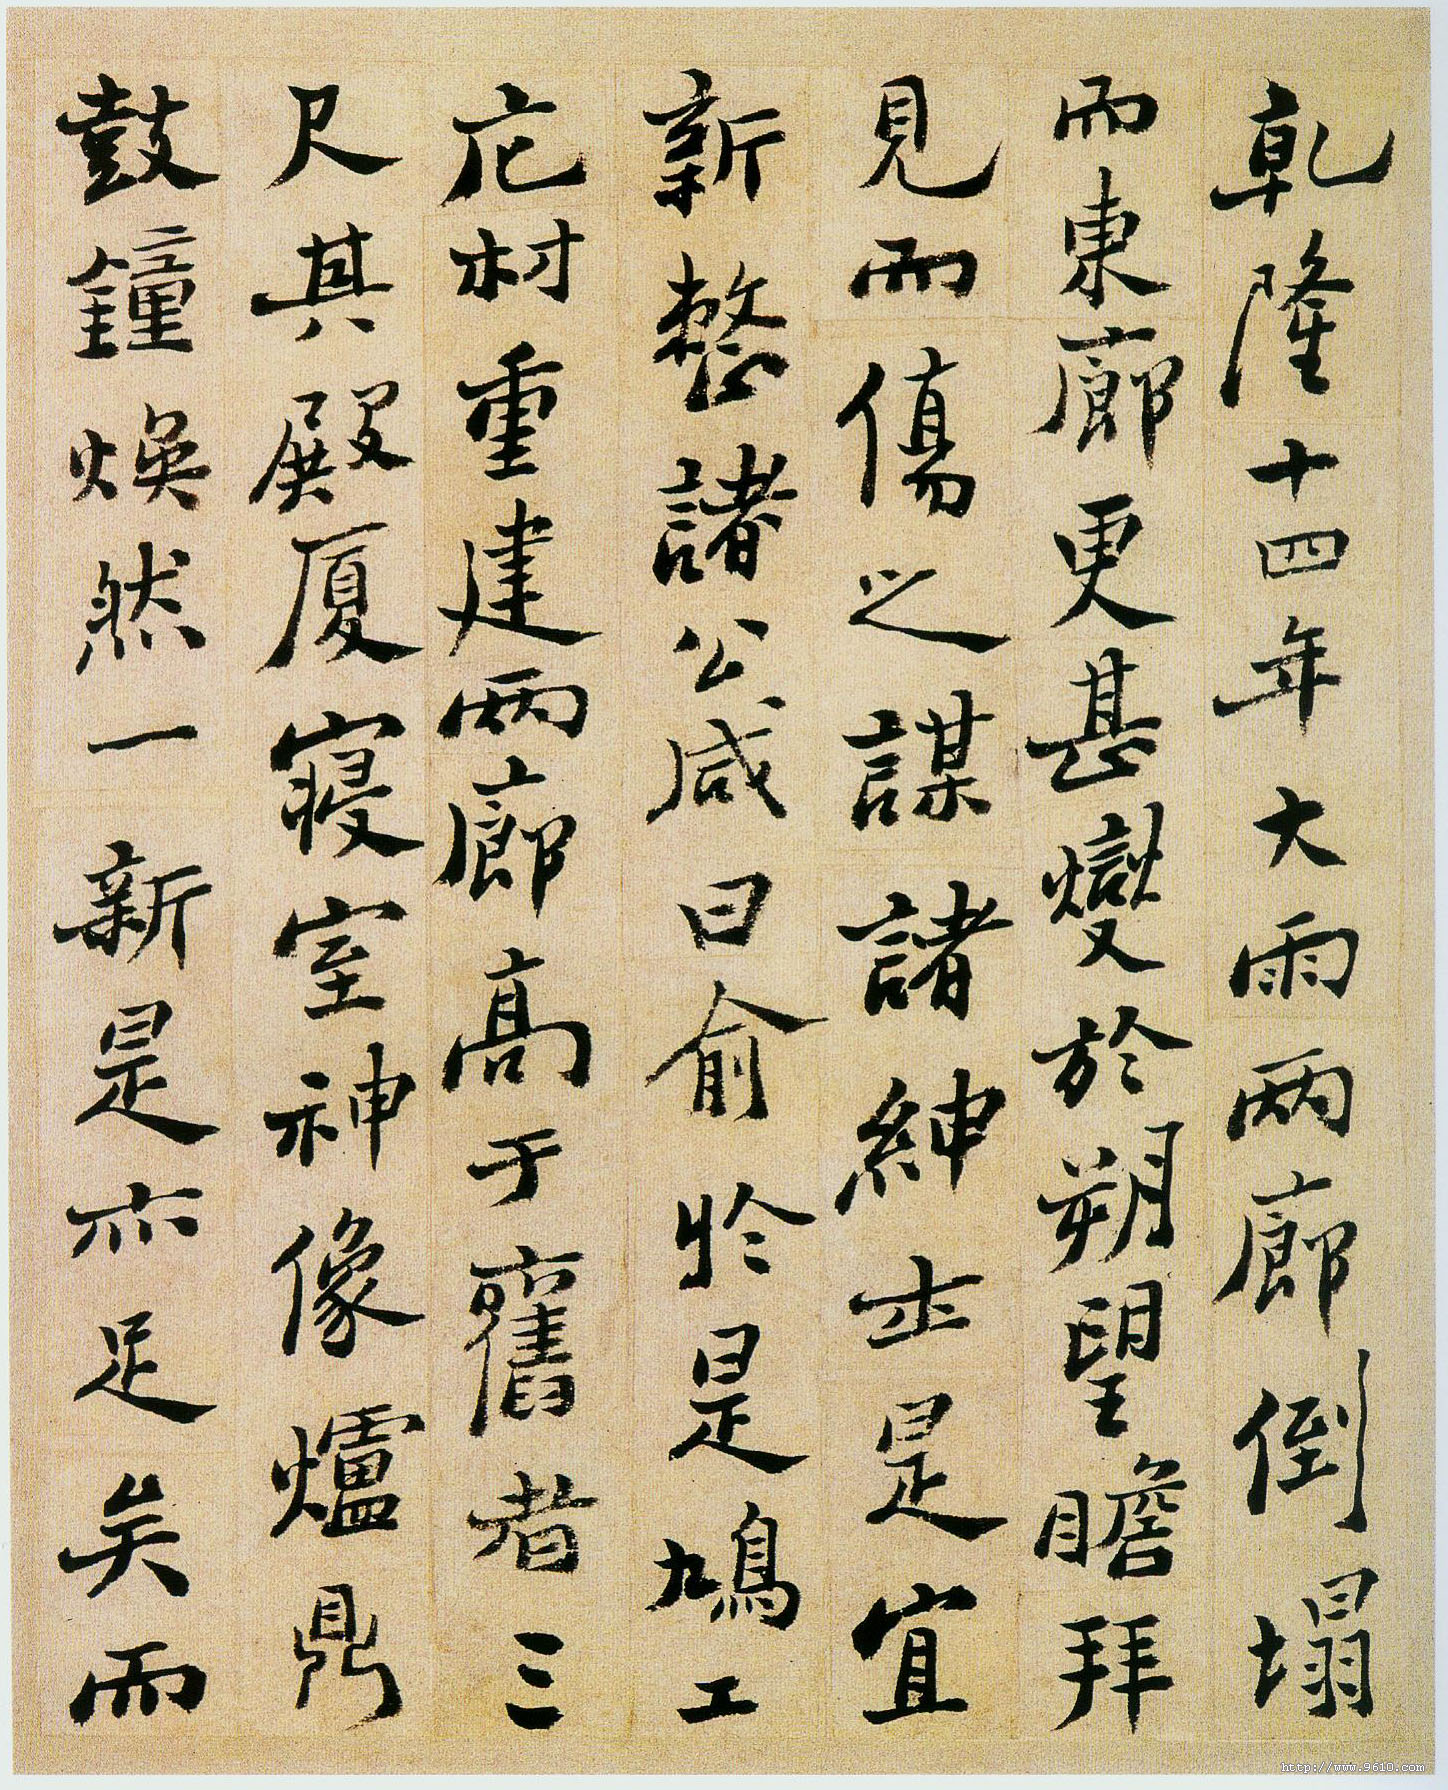 乾隆十四年大雨兩廊倒塌
而東廊更甚爕於朔望瞻拜
見而傷之謀諸紳士是宜
新整諸公咸曰俞於是鳩工
庀材重建兩廊高于舊者三
尺其殿厦寢室神像爐鼎
鼓鐘煥然一新是亦足矣而
http://www.9610.com